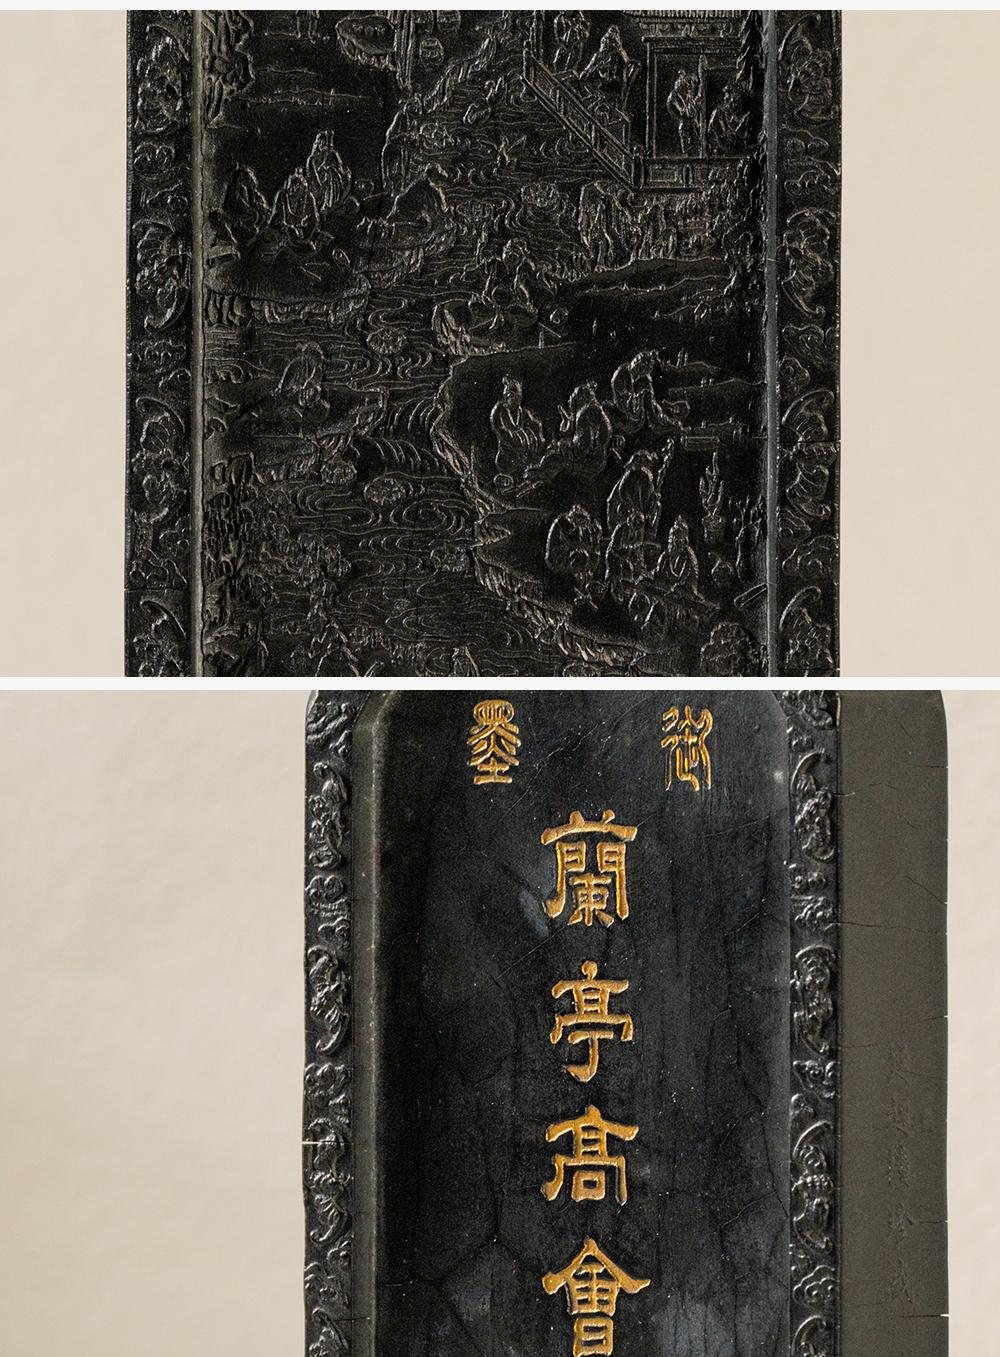 御墨
蘭亭高會